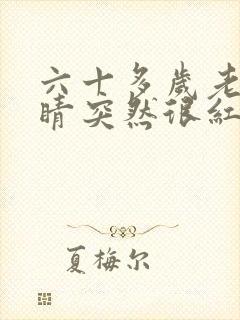 六十多歲老
睛突然很紅
夏梅尔